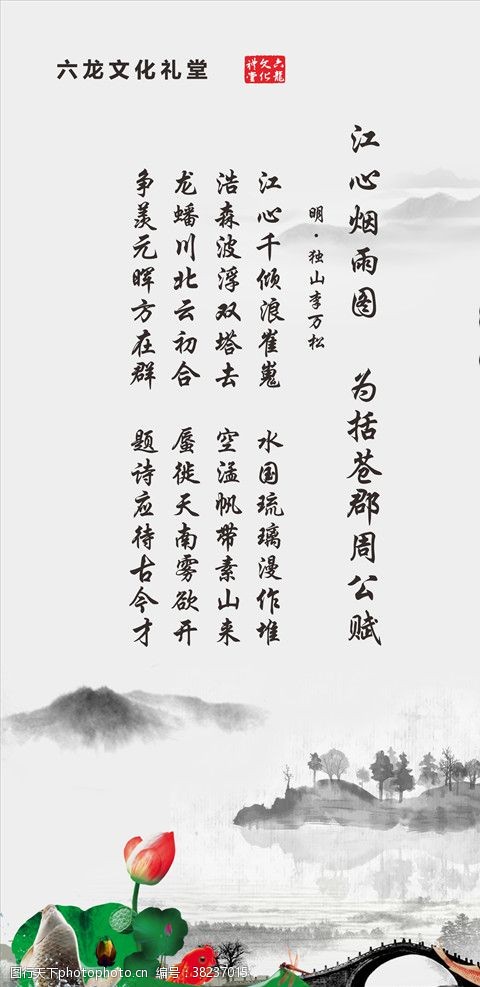 六龙文化礼堂
六龍文化礼堂
江心烟雨图 为括苍郡周公赋
明·独山李万松
江心千倾浪崔嵬 水国琉璃漫作堆
浩森波浮双塔去 空濛帆带素山来
龙蟠川北云初合 蜃徙天南雾欲开
争羡元晖方在群 题诗应待古今才
图行天下photophoto.cn 编号:38237015